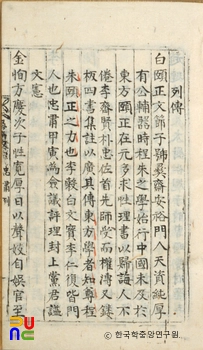 列傳
白頤正文節子號彝齋安裕門人天資純厚
有公輔器時程朱之學始行中國未及於
東方頤正在元多求性理書以歸誨人不
倦李齊賢朴忠佐首先師受權溥又鋟
板四書集註以廣其傳東方學者知尊程
朱頤正之力也李穀白文寶李仁復皆門
人也忠肅甲寅爲僉議評理封上黨君諡
文憲
金恂方慶次子性寬厚日以聲妓自娛官至
忠肅列
한국학중앙연구원